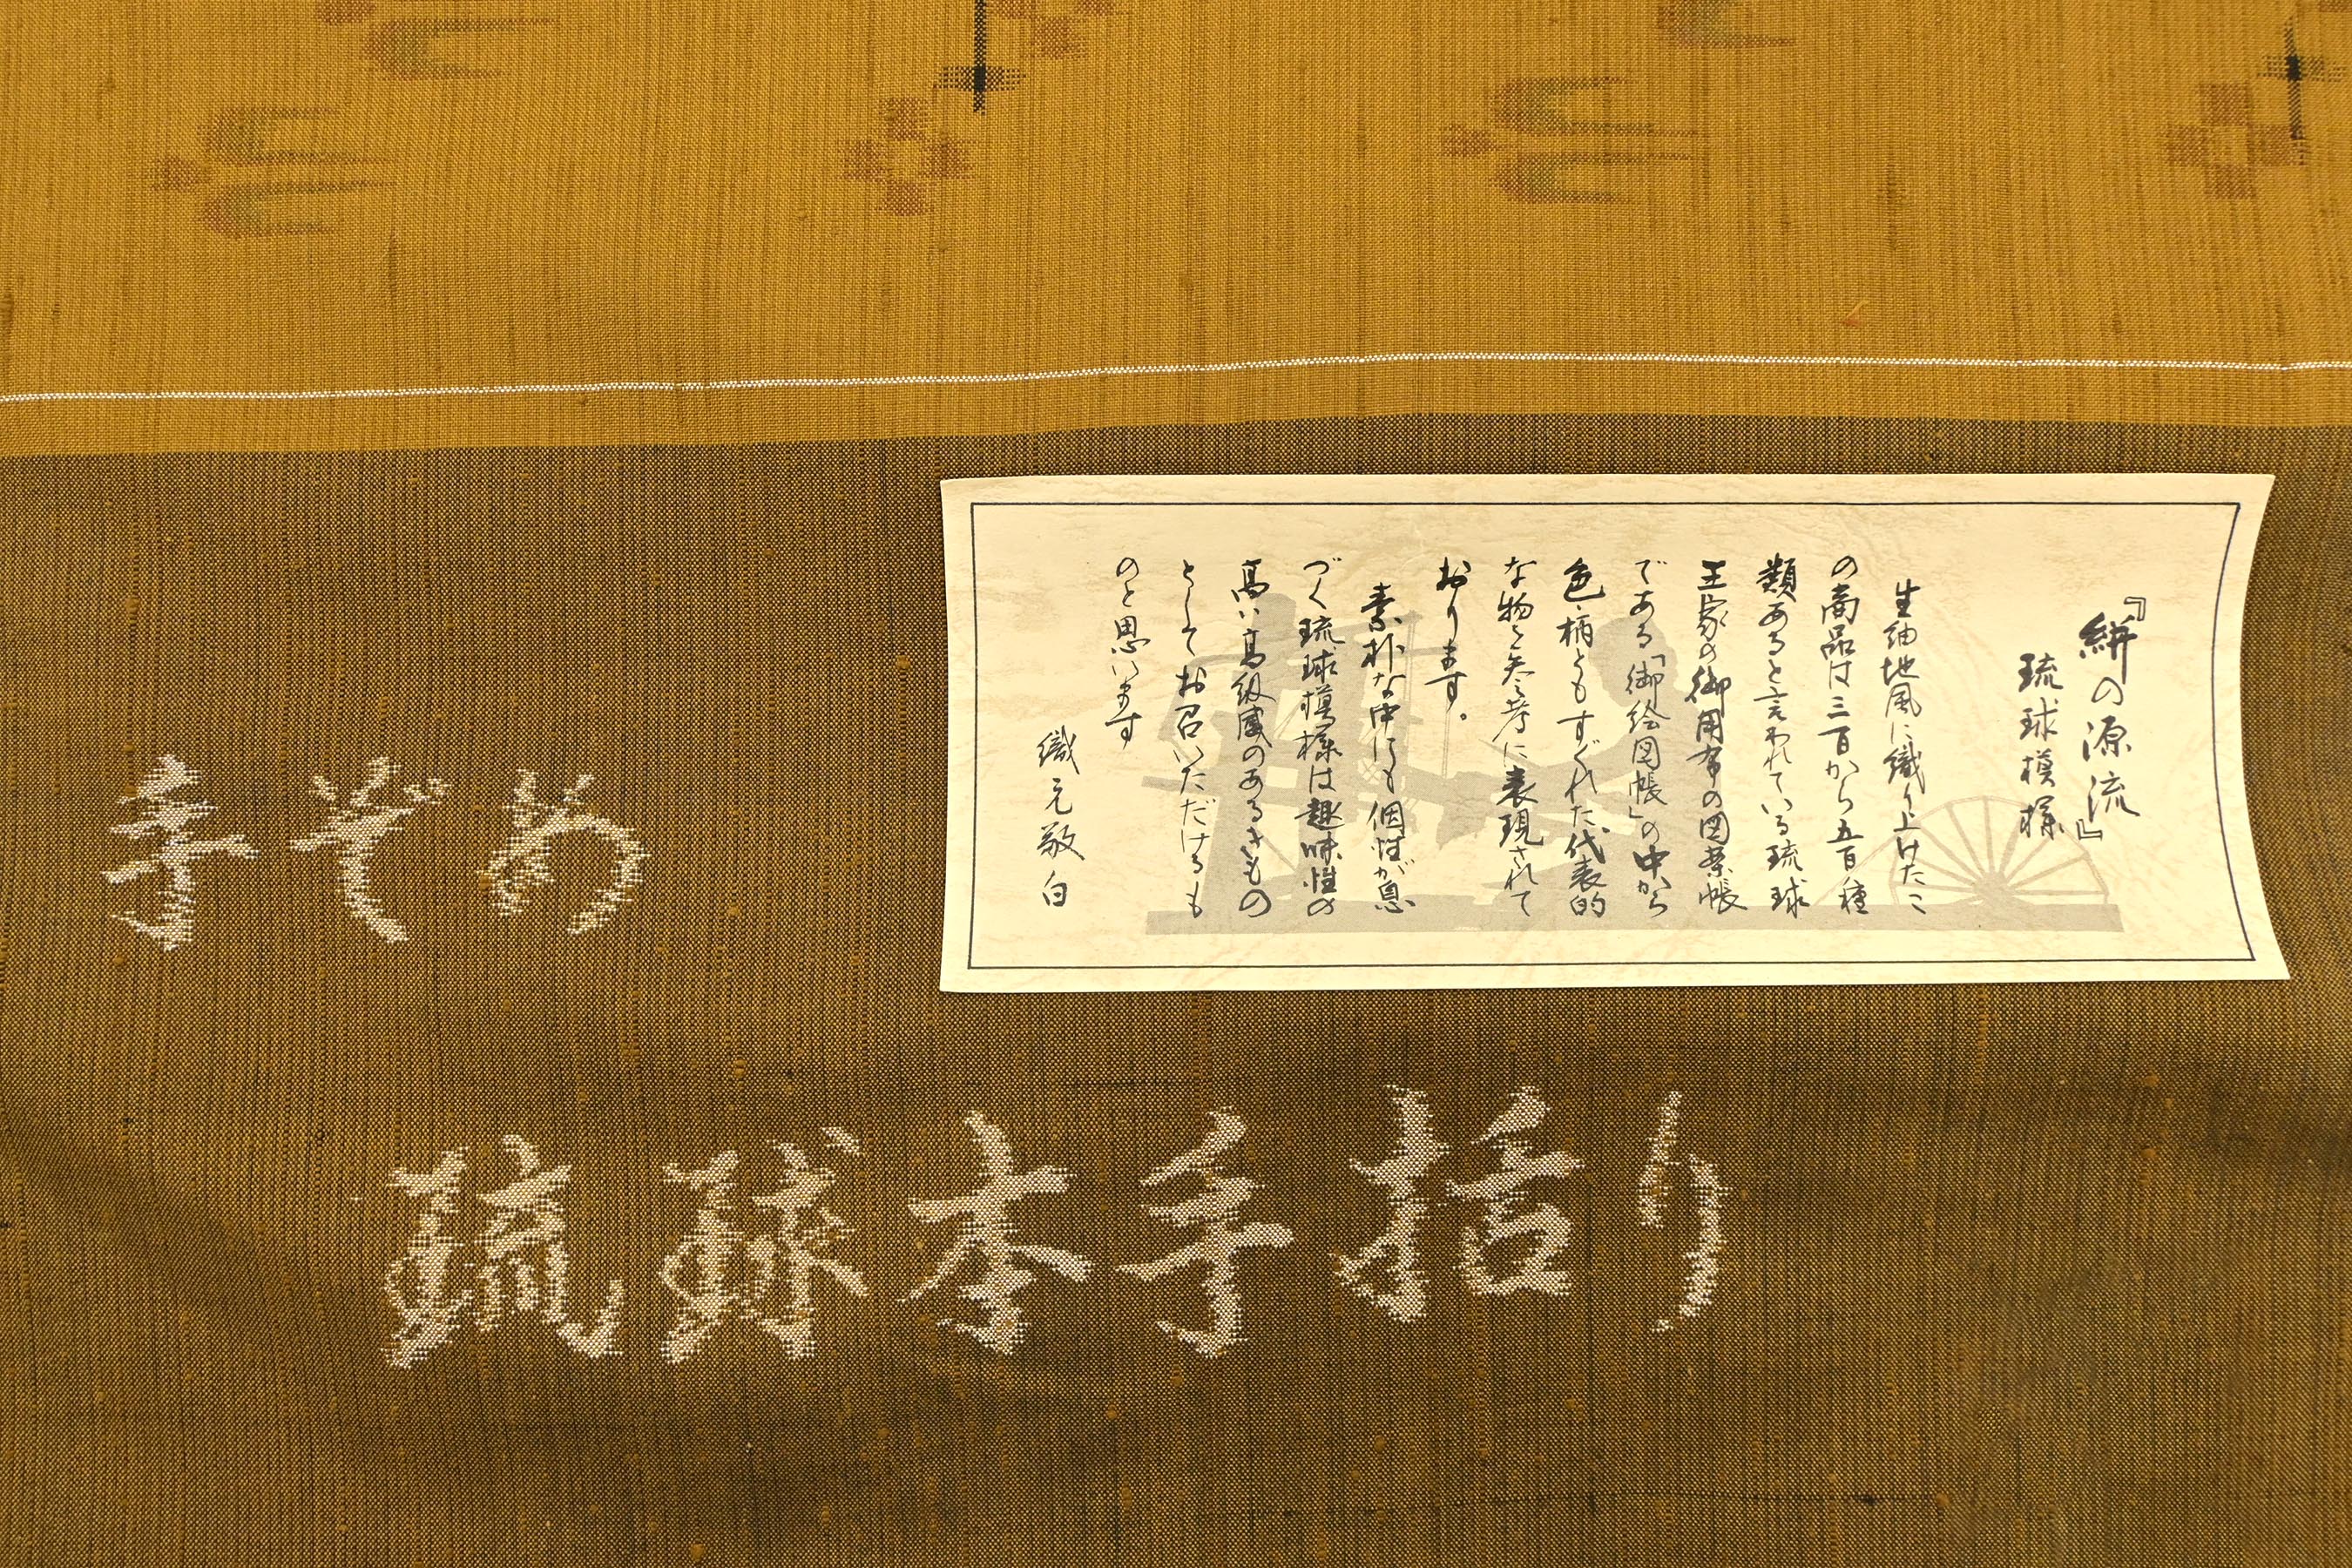 『絣の源流』
琉球模様
生紬地風に織り上げたこ
の商品は三百から五百種
類あると言われている琉球
王家の御用布の図案帳
である「御絵図帳」の中から
色・柄ともすぐれた代表的
な物を参考に表現されて
おります。
素朴な中にも個性が息
づく琉球模様は趣味性の
高い高級感のあるきもの
としてお召いただけるも
のと思います
織元敬白
手ぞめ
琉球本手括り